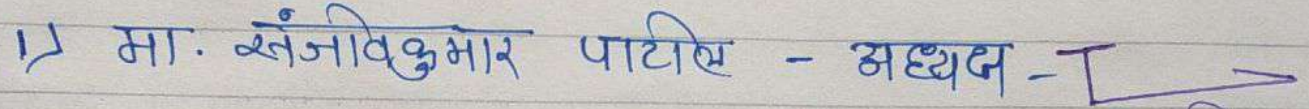 १) मा. संजीवकुमार पाटील - अध्यक्ष -